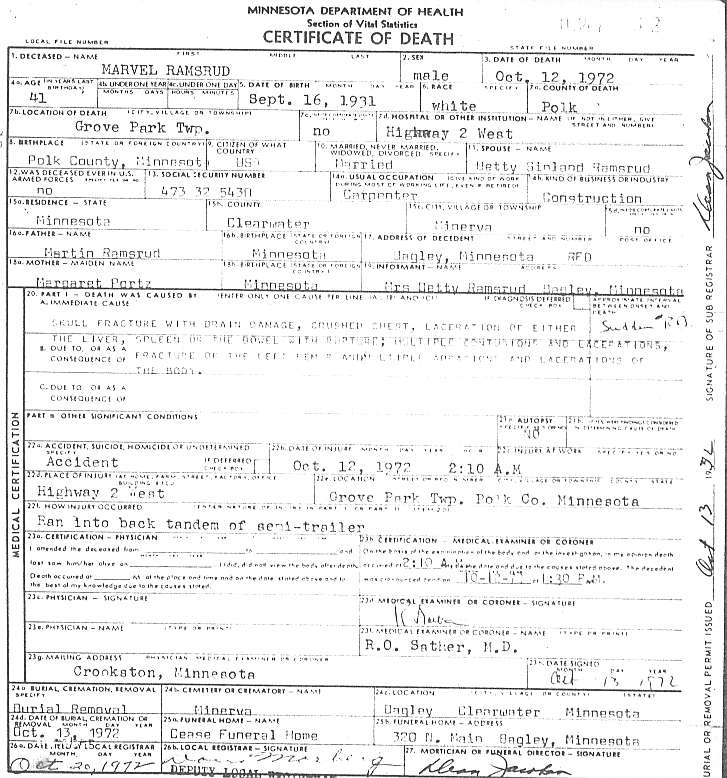 MINNESOTA DEPARTMENT OF HEALTH
Section of Vital Statistics
CERTIFICATE OF DEATH
LOCAL FILE NUMBER STATE FILE NUMBER
1. DECEASED – NAME FIRST MIDDLE LAST 2. SEX 3. DATE OF DEATH MONTH DAY YEAR
MARVEL RAMSRUD male Oct. 12, 1972
4a. AGE (IN YEARS LAST BIRTHDAY) 4b. UNDER ONE YEAR MONTHS DAYS 4c. UNDER ONE DAY HOURS MINUTES 5. DATE OF BIRTH MONTH DAY YEAR 6. RACE SPECIFY 7a. COUNTY OF DEATH
41 Sept. 16, 1931 white Polk
7b. LOCATION OF DEATH (CITY, VILLAGE OR TOWNSHIP) 7d. HOSPITAL OR OTHER INSTITUTION – NAME (IF NOT IN EITHER, GIVE STREET AND NUMBER)
Grove Park Twp. no Highway 2 West
8. BIRTHPLACE (STATE OR FOREIGN COUNTRY) 9. CITIZEN OF WHAT COUNTRY 10. MARRIED, NEVER MARRIED, WIDOWED, DIVORCED, SPECIFY 11. SPOUSE – NAME
Polk County, Minnesot USA Married Betty Sinland Ramsrud
12. WAS DECEASED EVER IN U.S. ARMED FORCES 13. SOCIAL SECURITY NUMBER 14a. USUAL OCCUPATION (GIVE KIND OF WORK DURING MOST OF WORKING LIFE, EVEN IF RETIRED) 14b. KIND OF BUSINESS OR INDUSTRY
no 473 32 5430 Carpenter Construction
15a. RESIDENCE – STATE 15b. COUNTY 15c. CITY, VILLAGE OR TOWNSHIP
Minnesota Clearwater Minerva no
16a. FATHER – NAME 16b. BIRTHPLACE (STATE OR FOREIGN COUNTRY) 17. ADDRESS OF DECEDENT STREET AND NUMBER POST OFFICE
Martin Ramsrud Minnesota Bagley, Minnesota RFD
18a. MOTHER – MAIDEN NAME 18b. BIRTHPLACE (STATE OR FOREIGN COUNTRY) 19. INFORMANT – NAME ADDRESS
Margaret Portz Minnesota Mrs Betty Ramsrud Bagley, Minnesota
20. PART I – DEATH WAS CAUSED BY (ENTER ONLY ONE CAUSE PER LINE IF DIAGNOSIS DEFERRED CHECK BOX APPROXIMATE INTERVAL BETWEEN ONSET AND DEATH
A. IMMEDIATE CAUSE
SKULL FRACTURE WITH BRAIN DAMAGE, CRUSHED CHEST, LACERATION OF EITHER
THE LIVER, SPLEEN OR THE BOWEL WITH RUPTURE; MULTIPLE CONTUSIONS AND LACERATIONS,
B. DUE TO, OR AS A CONSEQUENCE OF
FRACTURE OF THE LEFT FEMUR AND LACERATIONS OF
THE BODY.
C. DUE TO, OR AS A CONSEQUENCE OF
Sudden
PART II OTHER SIGNIFICANT CONDITIONS 21a. AUTOPSY
NO
22a. ACCIDENT, SUICIDE, HOMICIDE OR UNDETERMINED SPECIFY IF DEFERRED CHECK BOX 22b. DATE OF INJURY MONTH DAY YEAR HOUR 22c. INJURY AT WORK SPECIFY YES OR NO
Accident Oct. 12, 1972 2:10 A.M
22d. PLACE OF INJURY (AT HOME, FARM, STREET, FACTORY, OFFICE BUILDING ETC.) 22e. LOCATION STREET OR RFD NUMBER CITY, VILLAGE OR TOWNSHIP COUNTY STATE
Highway 2 West Grove Park Twp. Polk Co. Minnesota
22f. HOW INJURY OCCURRED
Ran into back tandem of semi-trailer
23a. CERTIFICATION – PHYSICIAN 23b. CERTIFICATION – MEDICAL EXAMINER OR CORONER
I attended the deceased from and On the basis of the examination of the body and/or the investigation, in my opinion death
last saw him/her alive on I did, did not view the body after death. occurred 2:10 A on the date and due to the causes stated above. The decedent
Death occurred at M. at the place and time and on the date stated above and to the best of my knowledge due to the causes stated. was pronounced dead on at 1:30 P.M.
23c. PHYSICIAN – SIGNATURE 23d. MEDICAL EXAMINER OR CORONER – SIGNATURE
23e. PHYSICIAN – NAME (TYPE OR PRINT) 23f. MEDICAL EXAMINER OR CORONER – NAME (TYPE OR PRINT)
R.O. Sather, M.D.
23g. MAILING ADDRESS PHYSICIAN, MEDICAL EXAMINER OR CORONER 23h. DATE SIGNED MONTH DAY YEAR
Crookston, Minnesota Oct 13 1972
24a. BURIAL, CREMATION, REMOVAL SPECIFY 24b. CEMETERY OR CREMATORY – NAME 24c. LOCATION (CITY, VILLAGE OR COUNTY) (STATE)
Burial Removal Minerva Bagley Clearwater Minnesota
24d. DATE OF BURIAL, CREMATION OR REMOVAL MONTH DAY YEAR 25a. FUNERAL HOME – NAME 25b. FUNERAL HOME – ADDRESS
Oct. 13, 1972 Cease Funeral Home 320 N. Main Bagley, Minnesota
26a. DATE, REC'D BY LOCAL REGISTRAR MONTH DAY YEAR 26b. LOCAL REGISTRAR – SIGNATURE 27. MORTICIAN OR FUNERAL DIRECTOR – SIGNATURE
Oct 20, 1972 Dean Jacobson
DEPUTY LOCAL REGISTRAR
MEDICAL CERTIFICATION
BURIAL OR REMOVAL PERMIT ISSUED Oct 13 1972 SIGNATURE OF SUB REGISTRAR Dean Jacobson